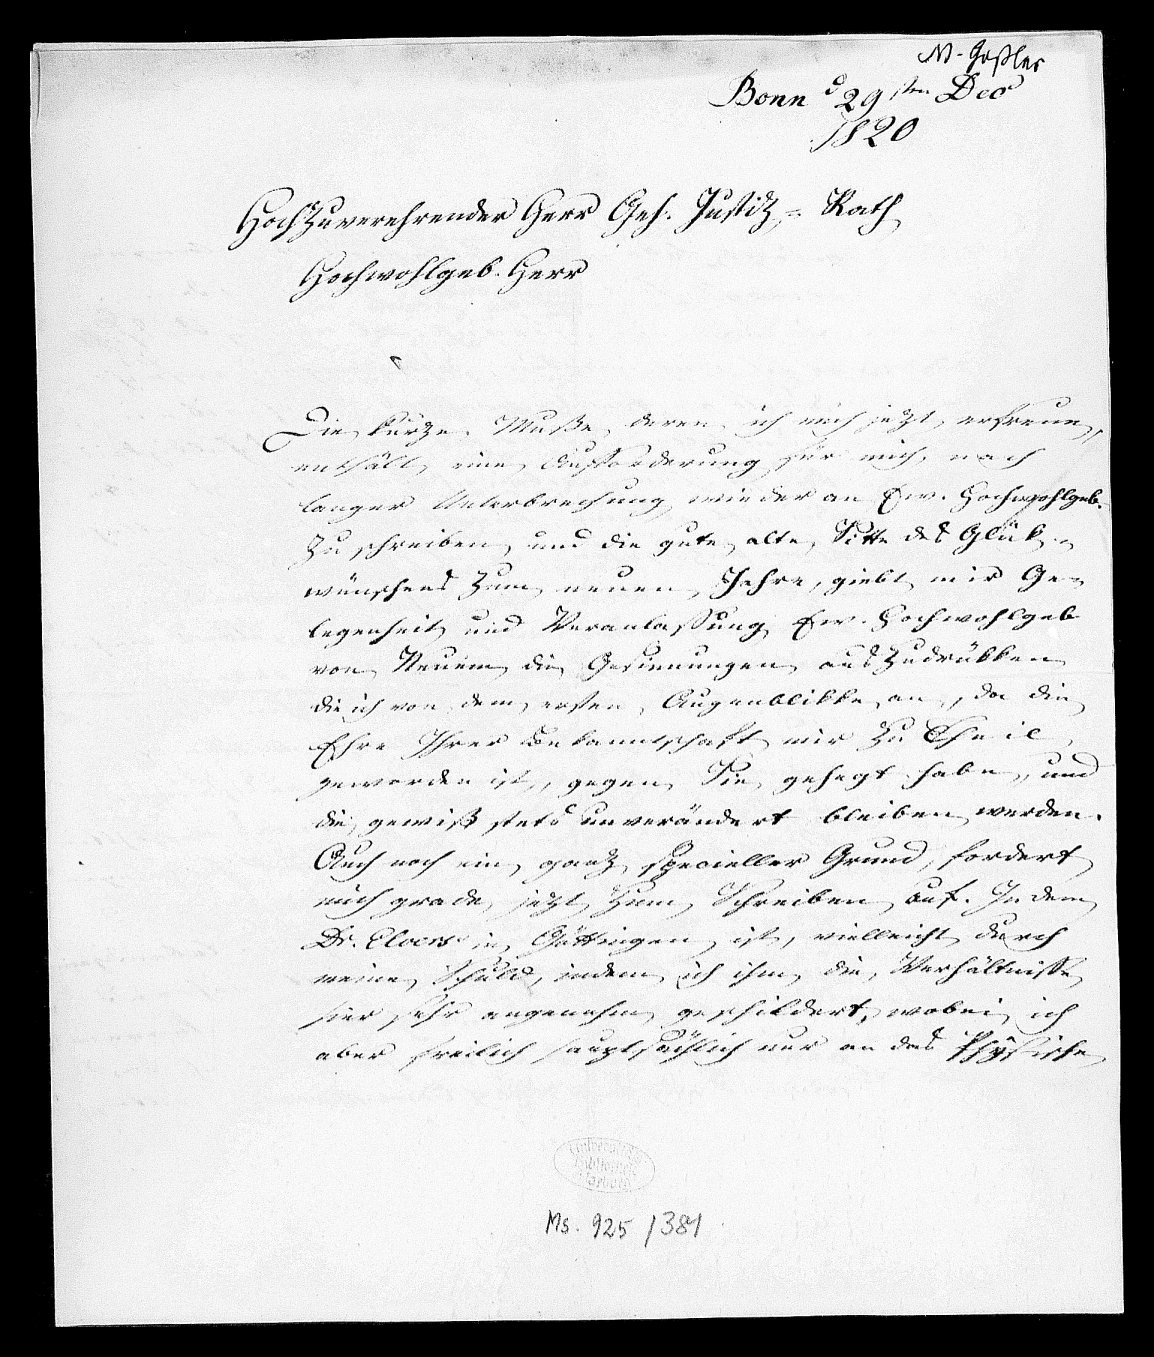 M. Haßler
Bonn d 29sten Dec
1820
Hochzuverehrender Herr Geh. Justiz-Rath
Hochwohlgeb. Herr
Die kurze Muße, deren ich mich jezt erfreue,
enthält eine Aufforderung für mich, nach
langer Unterbrechung wieder an Ew. Hochwohlgeb.
zu schreiben, und die gute alte Sitte des Glük-
wünschens zum neuen Jahre, giebt mir Ge-
legenheit und Veranlassung Ew. Hochwohlgeb
von Neuem die Gesinnungen auszudrükken
die ich von dem ersten Augenblikke an, da die
Ehre Ihrer Bekanntschaft mir zu Theil
geworden ist, gegen Sie gehegt habe, und
die gewiß stets unverändert bleiben werden.
Auch noch ein ganz specieller Grund, fordert
mich grade jezt zum Schreiben auf. Indem
Dr. Elvers in Göttingen ist, vielleicht durch
meine Schuld, indem ich ihm die Verhältnisse
hier sehr angenehm geschildert, wobei ich
aber freilich hauptsächlich nur an das Physische
Universitäts
Bibliothek
Marburg
Ms. 925/381